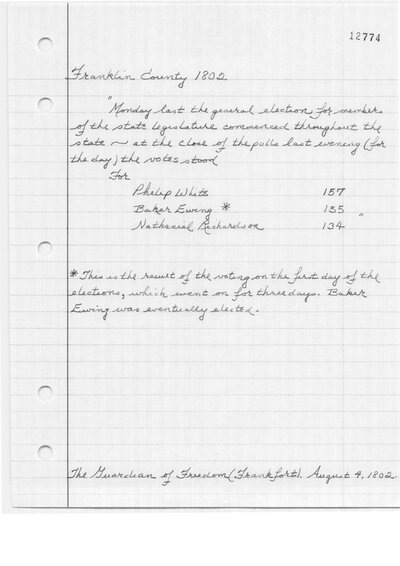 12774
Franklin County 1802
"Monday last the general election for member
of the state legislature commenced throughout the
state ~ at the close of the polls last evening (for
the day) the votes stood
For
Philip White 157
Baker Ewing * 155 "
Nathaniel Richardson 134
* This is the result of the voting on the first day of the
elections, which went on for three days. Baker
Ewing was eventually elected.
The Guardian of Freedom (Frankfort). August 4, 1802.